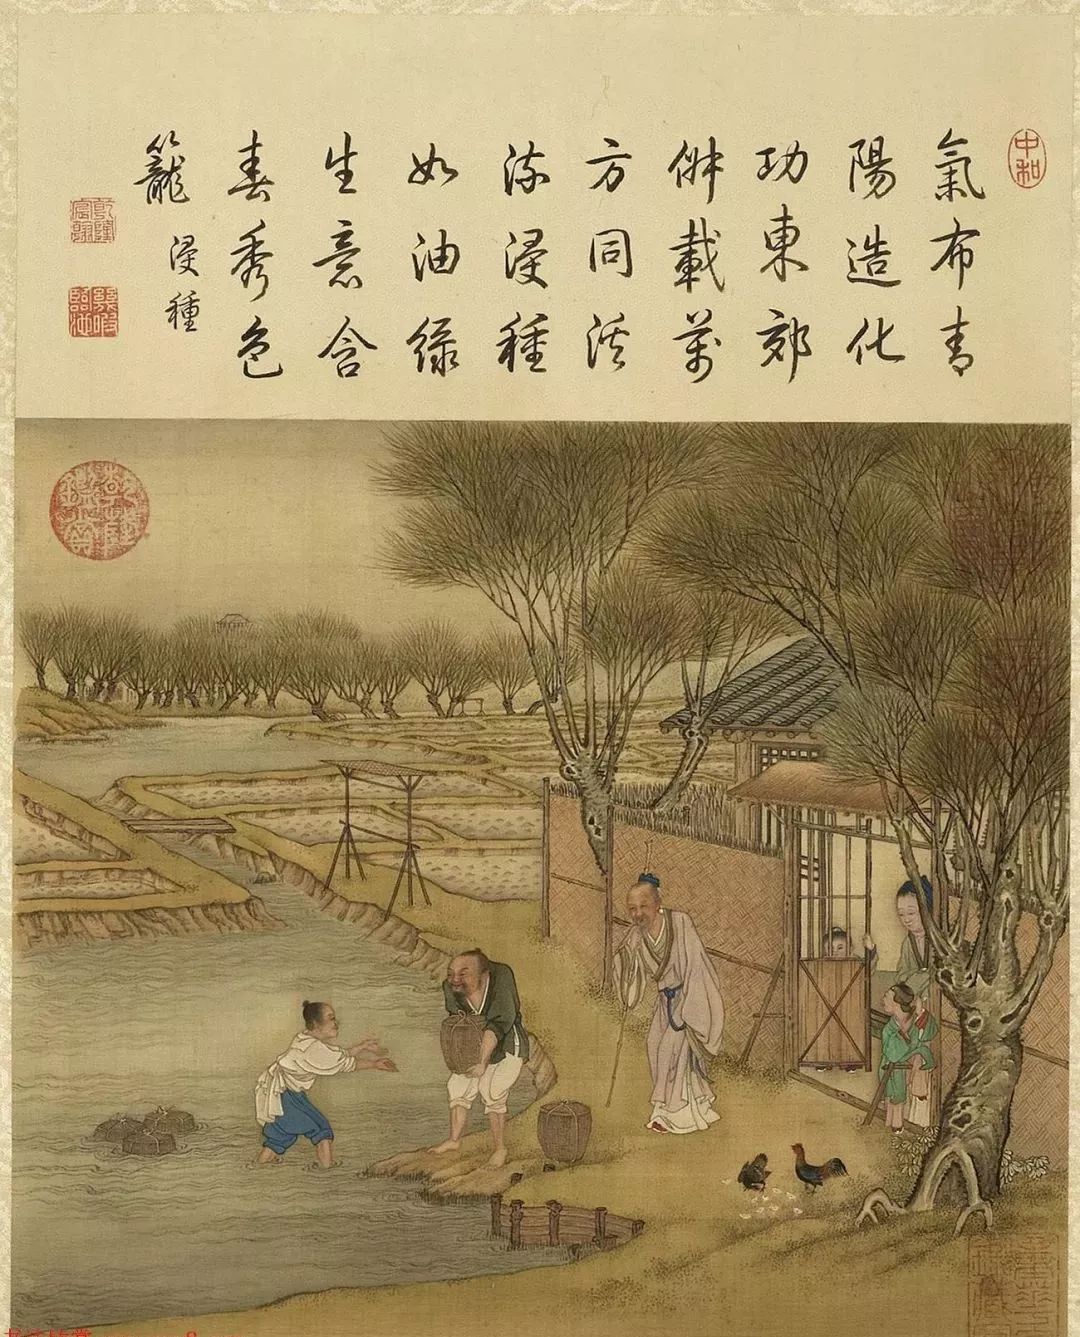 中和
氣布青
陽造化
功東郊
俶載萬
方同溪
流浸種
如油綠
生意含
春秀色
籠
浸種
乾隆宸翰
幾暇臨池